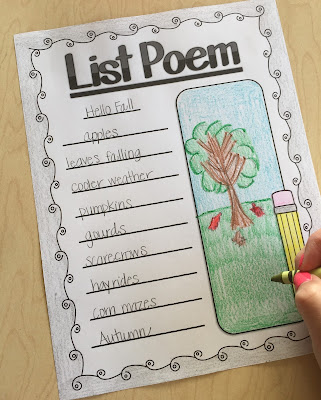 List Poem
Hello Fall
apples
leaves falling
cooler weather
pumpkins
gourds
scarecrows
hayrides
corn mazes
Autumn!